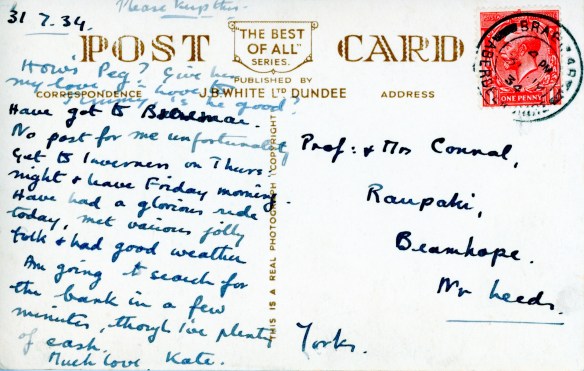 31.7.34.
Please keep this.
POST CARD
"THE BEST
OF ALL"
SERIES.
PUBLISHED BY
J.B. WHITE LTD DUNDEE
CORRESPONDENCE
ADDRESS
How's Peg? Give her
my love, & love to
is he good?
Have got to Braemar.
No post for me unfortunately
Get to Inverness on Thurs:
night & leave Friday morning.
Have had a glorious ride
today, met various jolly
folk & had good weather
Am going to search for
the bank in a few
minutes, though I've plenty
of cash.
Much love, Kate.
THIS IS A REAL PHOTOGRAPH COPYRIGHT
Prof: & Mrs Connal,
Raupaki,
Bramhope.
Nr Leeds.
Yorks.
ONE PENNY
BRAEMAR
PM
34